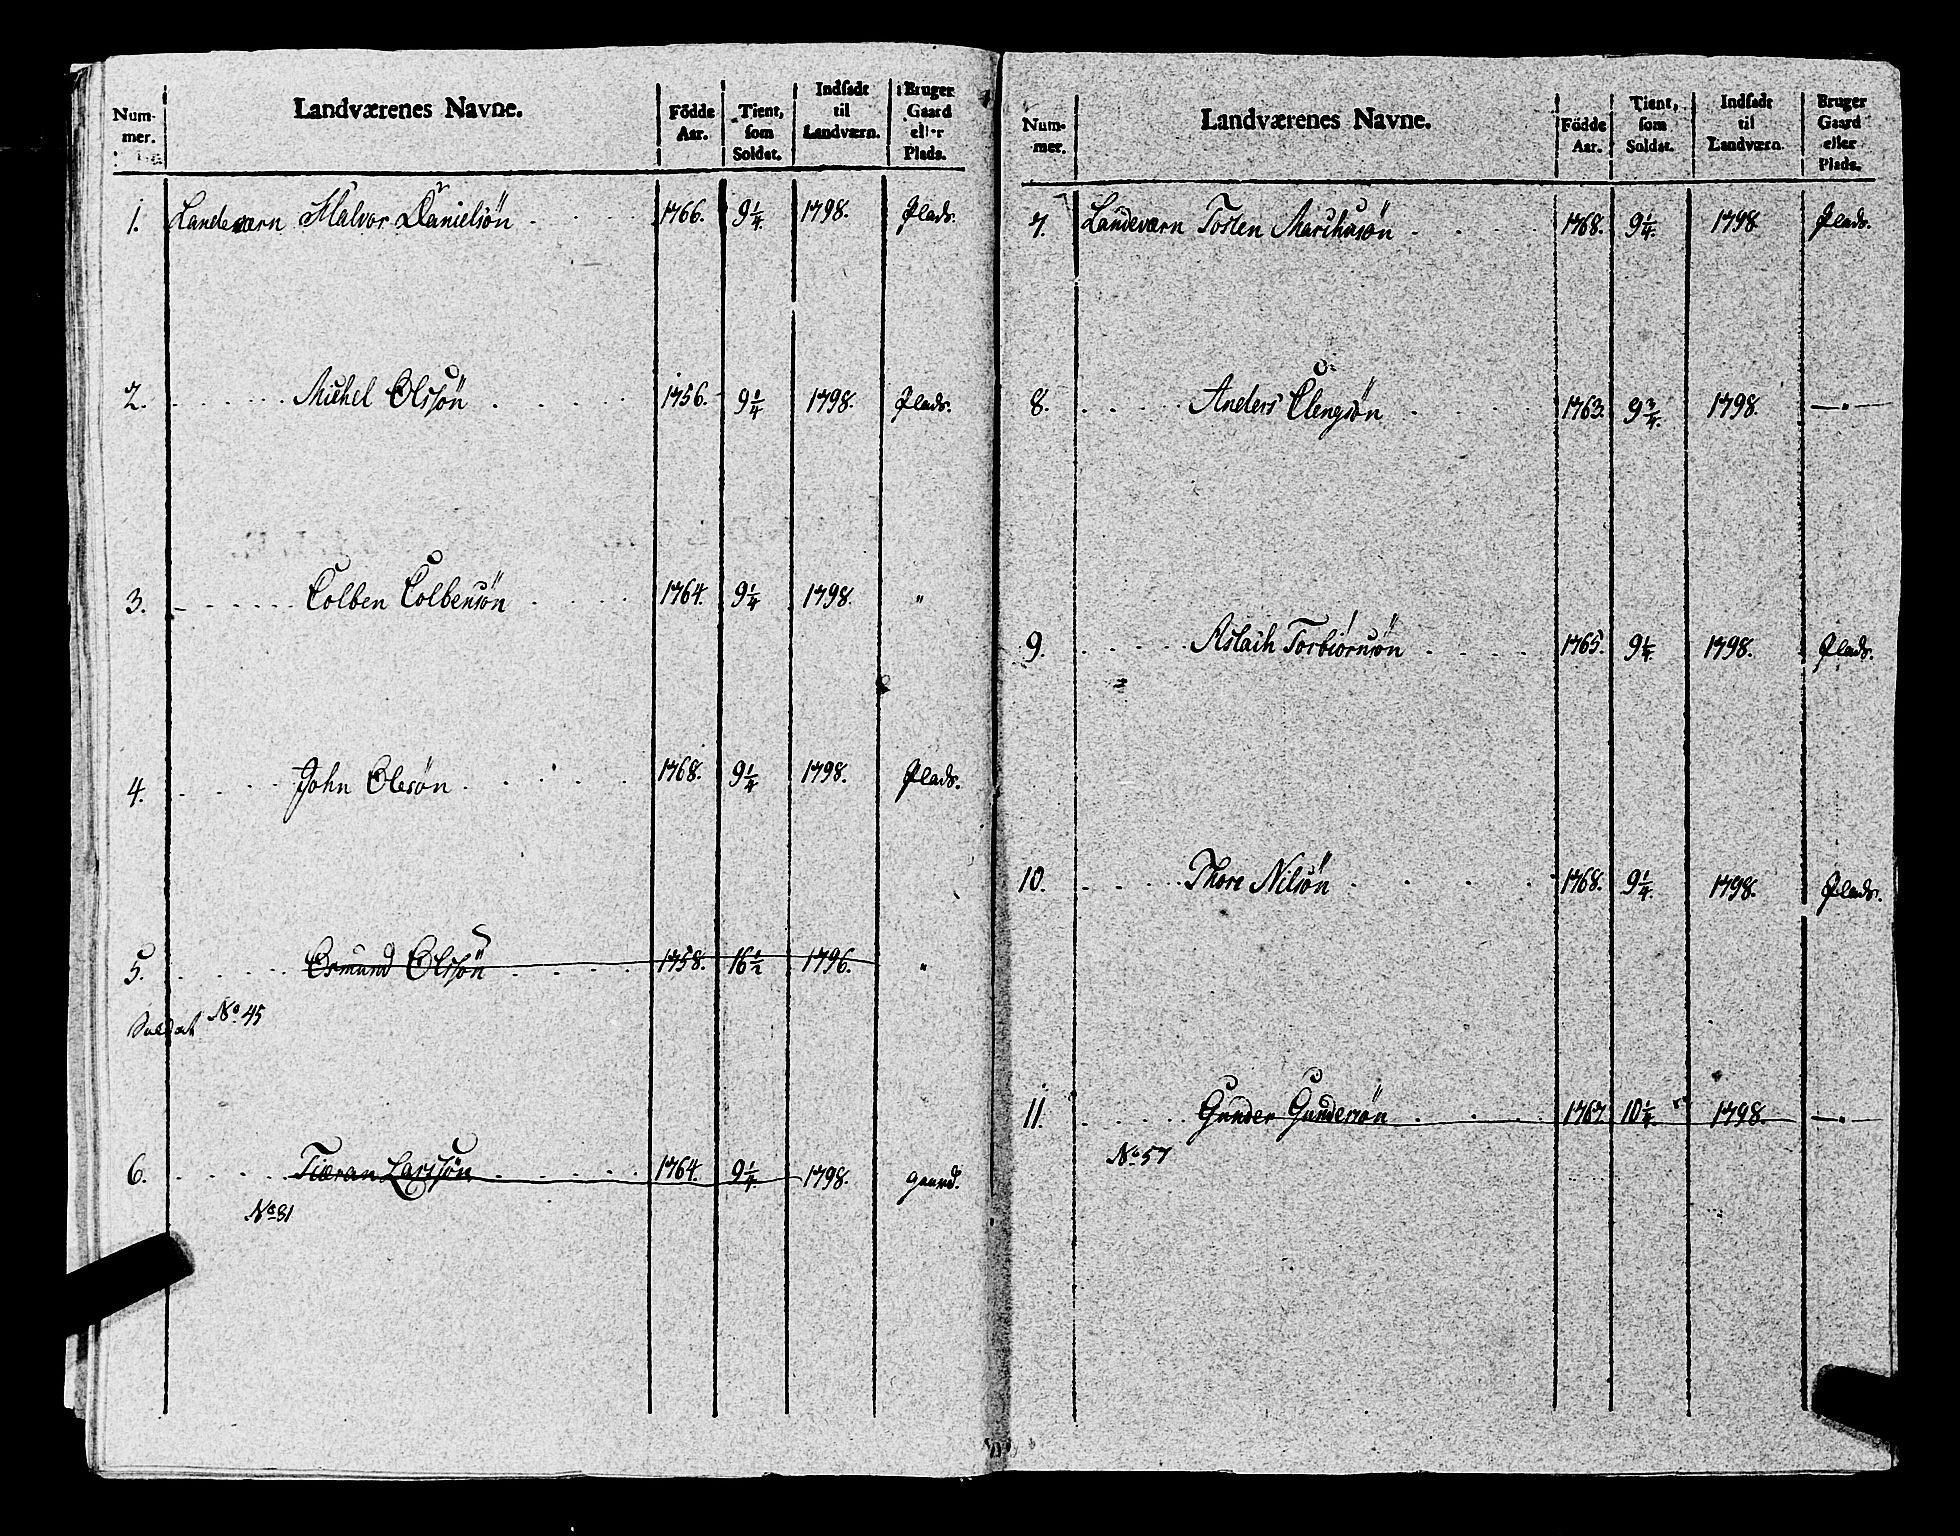 Num-
mer.
Landværenes Navne.
Födde
Aar.
Tient,
som
Soldat.
Indsadt
til
Landværn.
Bruger
Gaard
eller
Plads.
1. Landeværn Halvor Danielsön 1766. 9 1/4 1798. Plads.
2. Michel Olssön 1756. 9 1/4 1798. Plads.
3. Colben Colbensön 1764. 9 1/4 1798. "
4. John Olesön 1768. 9 1/4 1798. Plads.
5. Osmund Olssön 1758. 16 1/2 1796. "
Soldat No. 45
6. Tiæran Larssön 1764. 9 1/4 1798. gaard.
No. 81
Num-
mer.
Landværenes Navne.
Födde
Aar.
Tient,
som
Soldat.
Indsadt
til
Landværn.
Bruger
Gaard
eller
Plads.
7. Landeværn Tosten Marchusön 1768. 9 1/4. 1798. Plads.
8. Anders Elengsön 1763. 9 3/4. 1798. — " —
9. Aslach Torbiörnsön 1765. 9 1/4. 1798. Plads.
10. Thore Nilsön 1768. 9 1/4. 1798. Plads.
11. Gunder Gundersön 1767. 10 1/4. 1798. — " —
No. 57